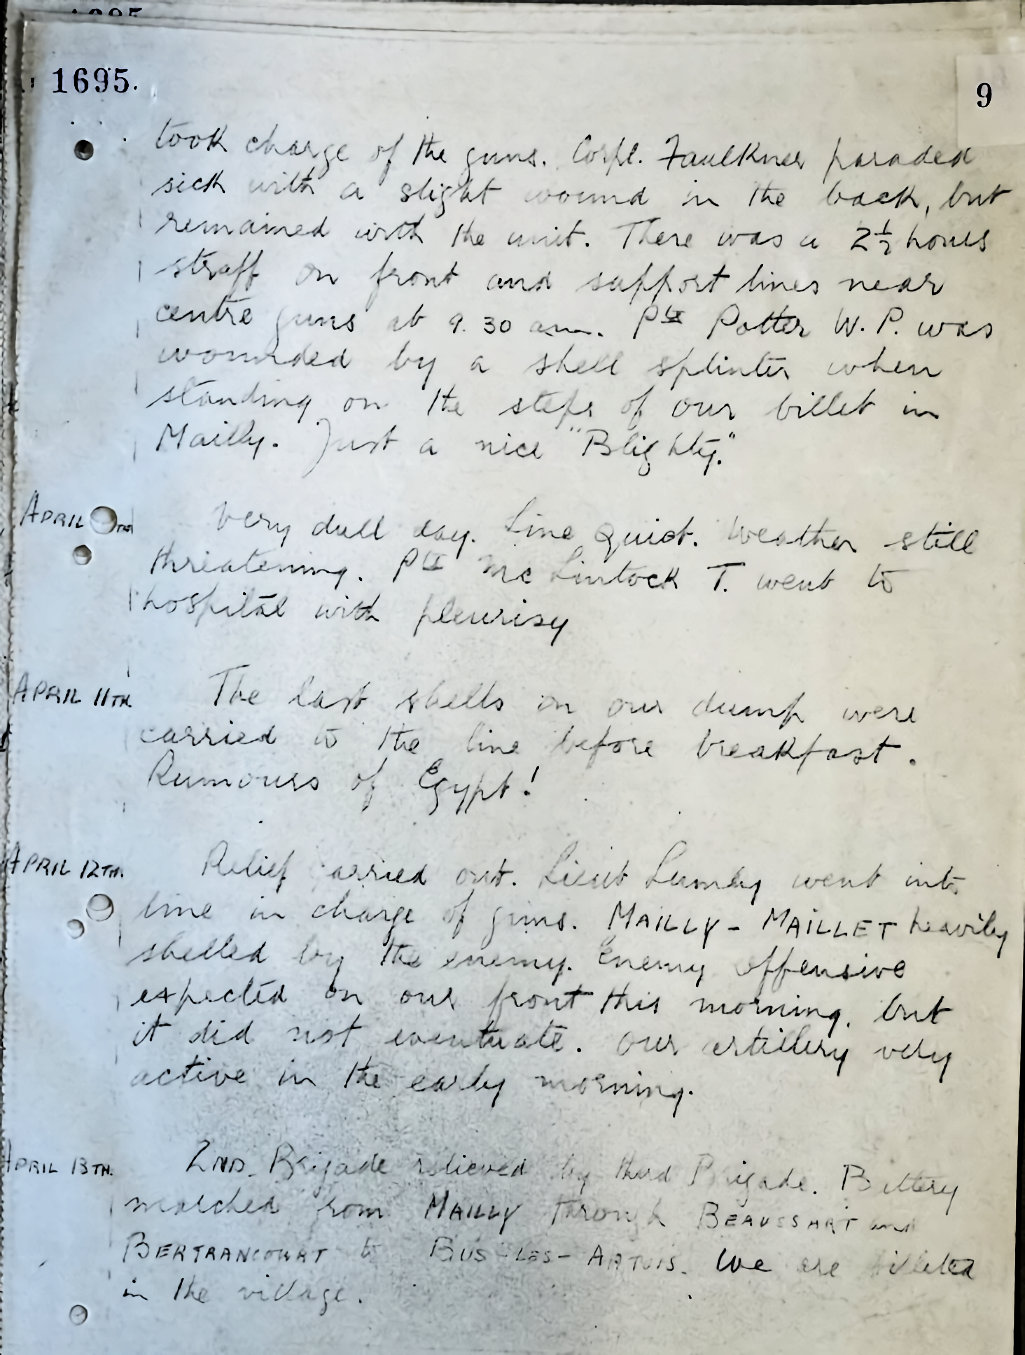 1695.
9
took charge of the guns. Corpl. Faulkner paraded
sick with a slight wound in the back, but
remained with the unit. There was a 2½ hours
straff on front and support lines near
centre guns at 9.30 am. Pte Potter W. P. was
wounded by a shell splinter when
standing on the steps of our billet in
Mailly. Just a nice "Blighty."
APRIL
Very dull day. Line Quiet. Weather still
threatening. Pte McLintock T. went to
hospital with pleurisy
APRIL 11TH.
The last shells on our dump were
carried to the line before breakfast.
Rumours of Egypt!
APRIL 12TH.
Relief carried out. Lieut Lumby went into
line in charge of guns. MAILLY-MAILLET heavily
shelled by the enemy. Enemy offensive
expected on our front this morning, but
it did not eventuate. Our artillery very
active in the early morning.
APRIL 13TH.
2ND. Brigade relieved by third Brigade. Battery
marched from MAILLY through BEAUSSART and
BERTRANCOURT to BUS-LES-ARTOIS. We are billeted
in the village.